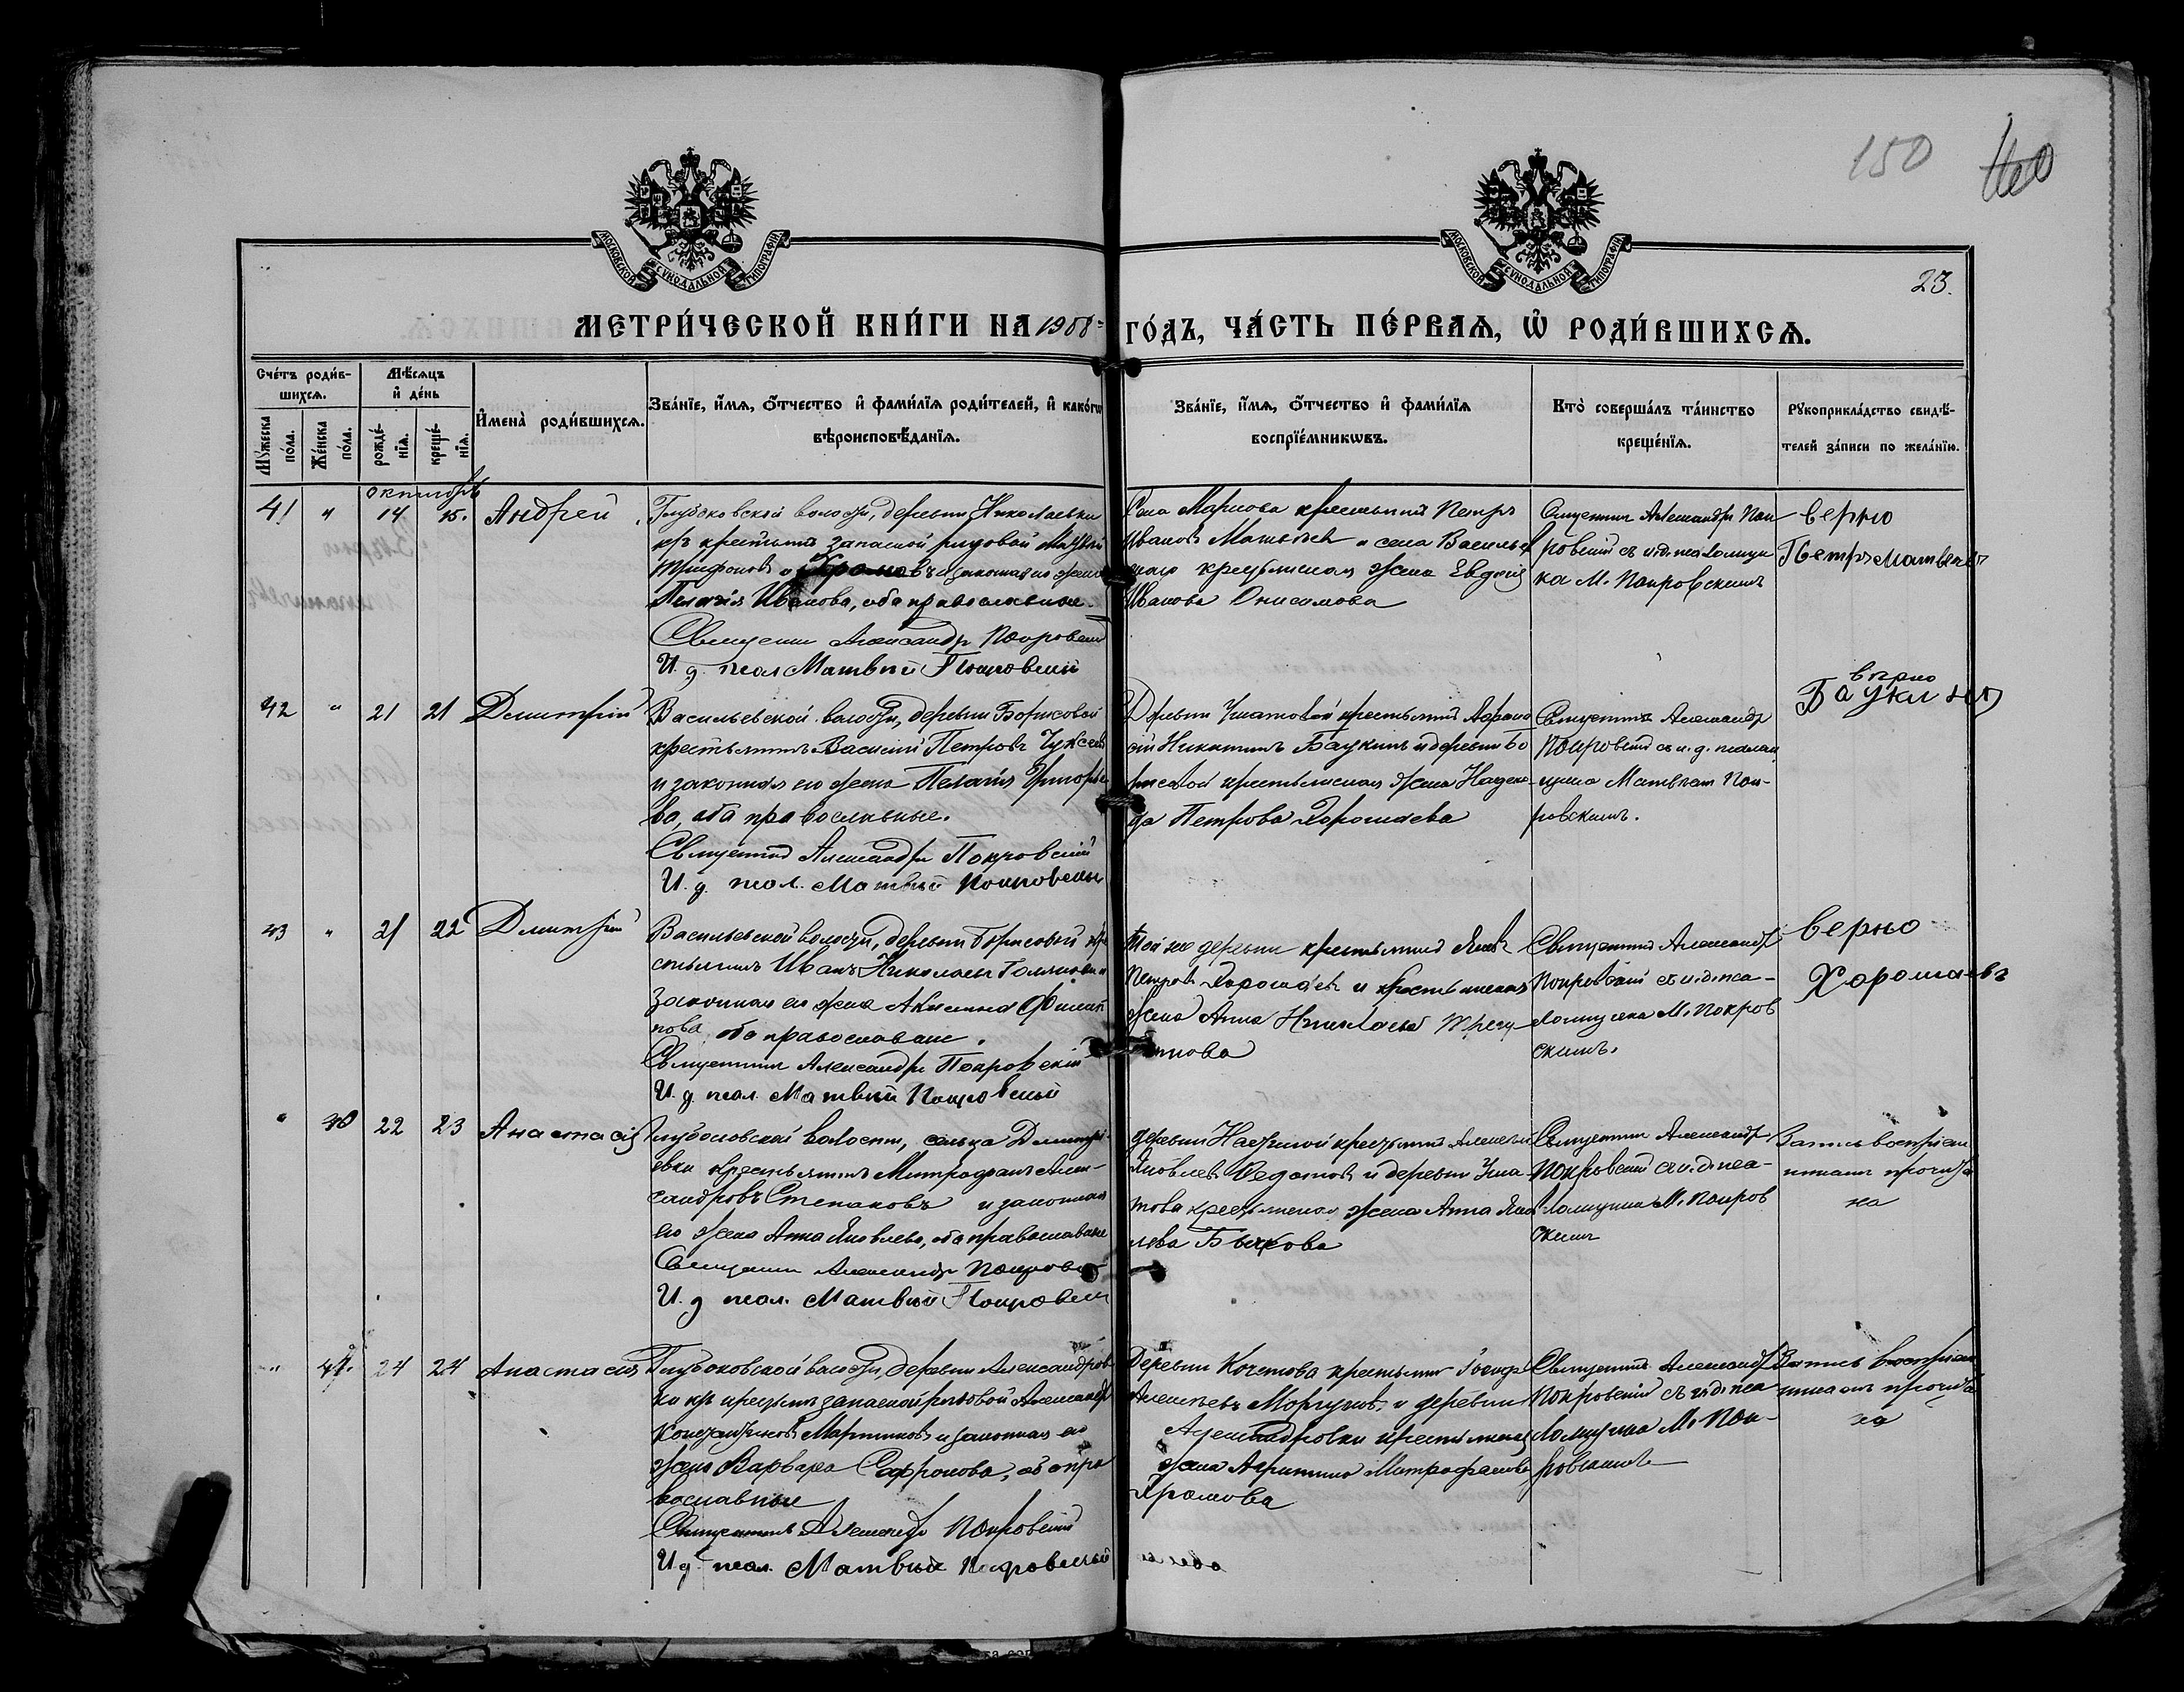 150
23.
МОСКОВСКОЙ СУНОДАЛЬНОЙ ТИПОГРАФІИ
МОСКОВСКОЙ СУНОДАЛЬНОЙ ТИПОГРАФІИ
МЕТРИ́ЧЕСКОЙ КНИ́ГИ НА 1908 ГО́ДЪ, ЧА́СТЬ ПЕ́РВАѦ, Ѡ РОДИ́ВШИХСѦ.
Сче́тъ роди́в-
шихсѧ.
Му́жеска по́ла.
Же́нска по́ла.
Мѣ́сѧцъ
и де́нь
рожде́-нїѧ.
креще́-нїѧ.
Имена̀ роди́вшихсѧ.
Зва́нїе, и́мѧ, о́тчество и фами́лїѧ роди́телей, и како́гѡ
вѣроисповѣ́данїѧ.
Зва́нїе, и́мѧ, о́тчество и фами́лїѧ
воспрїе́мникѡвъ.
Кто̀ соверша́лъ та́инство
креще́нїѧ.
Рꙋкоприкла́дство свидѣ́-
телей за́писи по жела́нїю.
октябрь
41 " 14 15. Андрей
Глубоковской волости, деревни Николаевки
крестьянинъ запасной рядовой
и законная его жена
Пелагія Иванова, оба православные.
Священникъ Александръ Покровскій
И. д. псал. Матвѣй Покровскій
Села Маркова крестьянинъ Петръ
Ивановъ Матвѣевъ и села Васильев
скаго крестьянская жена Евдокія
Иванова Онисимова
Священникъ Александръ Пок
ровскій съ и. д. псаломщи
ка М. Покровскимъ
верно
Петръ Матвеевъ
42 " 21 21 Димитрій
Васильевской волости, деревни Борисовой
крестьянинъ Василій Петровъ
и законная его жена Пелагія Григорье
ва, оба православные.
Священникъ Александръ Покровскій
И. д. псал. Матвѣй Покровскій
Деревни крестьянинъ
Никитинъ Баукинъ и деревни Бо
рисовой крестьянская жена Надеж
да Петрова Хорошаева
Священникъ Александръ
Покровскій съ и. д. псалом
щика Матвѣемъ Пок-
ровскимъ.
вѣрно
43 " 21 22 Димитрій
Васильевской волости, деревни Борисовой кре
стьянинъ Иванъ Николаевъ и
законная его жена Акилина Филип
пова, оба православные.
Священникъ Александръ Покровскій
И. д. псал. Матвѣй Покровскій
Той же деревни крестьянинъ Яковъ
Петровъ Хорошаевъ и крестьянская
жена Анна Николаева
Священникъ Александръ
Покровскій съ и. д. пса-
ломщика М. Покров
скимъ.
верно
Хорошаевъ
" 40 22 23 Анастасія
Глубоковской волости, сельца Дмитрі-
евки крестьянинъ Митрофанъ Алек-
сандровъ Степановъ и законная
его жена Анна Яковлева, оба православные
Священникъ Александръ Покровскій
И. д. псал. Матвѣй Покровскій
деревни крестьянинъ Алексѣй
Яковлевъ Федотовъ и деревни
това крестьянская жена Анна Яков
лева Бычкова
Священникъ Александръ
Покровскій съ и. д. пса-
ломщика М. Покров
скимъ
Запись воспріем
никамъ прочита
на
" 41. 24 24 Анастасія
Глубоковской волости, деревни Александров
ки крестьянинъ запасной рядовой Александръ
Константиновъ Мартиновъ и законная его
жена Варвара Сафронова, оба пра
вославные
Священникъ Александръ Покровскій
И. д. псал. Матвѣй Покровскій
Деревни Кочетова крестьянинъ
Алексѣевъ Моргуновъ и деревни
Александровки крестьянская
жена Агрипина Митрофанова
Хромова
Священникъ Александръ
Покровскій съ и. д. пса
ломщика М. Пок-
ровскимъ
Запись воспріем
никамъ прочита
на